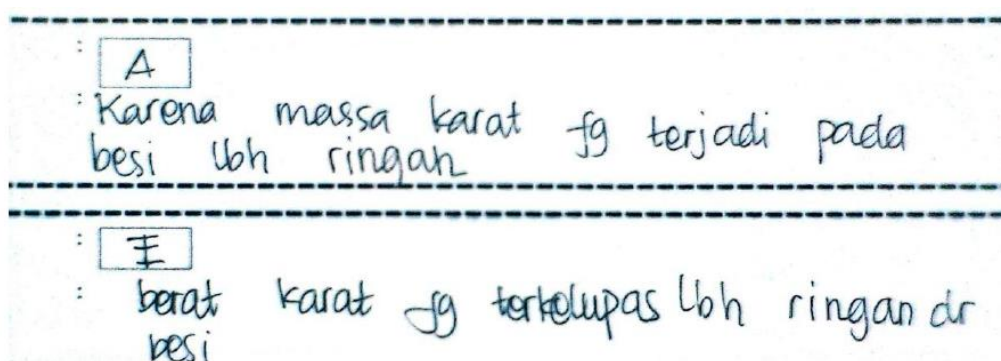 : A
: Karena massa karat yg terjadi pada
besi lbh ringan
: I
: berat karat yg terkelupas lbh ringan dr
besi